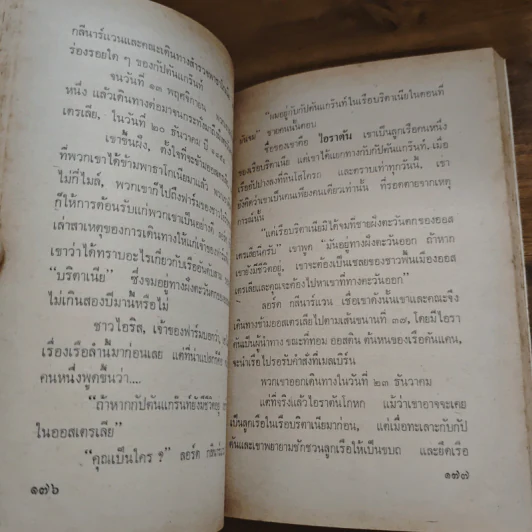 กลีนาร์แวนและคณะเดินทางสำรวจ
ร่องรอยใด ๆ ของกัปตันแกร๊นท์
จนวันที่ ๑๓ พฤศจิกายน
หนึ่ง แล้วเดินทางต่อมาจนกระทั่งมาถึง
เตรเลีย, ในวันที่ ๒๐ ธันวาคม ปี
เขาขึ้นฝั่ง, ตั้งใจที่จะ
ที่พวกเขาได้ข้ามพาธาโกเนียมาแล้ว
ไม่กี่ไมล์, พวกเขาก็ไปถึงฟาร์มของ
ก็ให้การต้อนรับแก่พวกเขาเป็นอย่างดี
เล่าสาเหตุของการเดินทางให้แก่เจ้าของ
เขาว่าได้ทราบอะไรเกี่ยวกับเรืออับปาง
"บริตาเนีย" ซึ่งจมอยู่ทางฝั่งตะวันตกของ
ไม่เกินสองปีมานี้หรือไม่
ชาวไอริส, เจ้าของฟาร์มบอกว่า,
เรื่องเรือลำนั้นมาก่อนเลย แต่ที่น่าแปลก
คนหนึ่งพูดขึ้นว่า....
"ถ้าหากกัปตันแกร๊นท์ยังมีชีวิตอยู่
ในออสเตรเลีย"
"คุณเป็นใคร ?" ลอร์ด
๑๗๖
"ผมอยู่กับกัปตันแกร๊นท์ในเรือบริตาเนียในตอนที่
ชายคนนั้นตอบ
ชื่อของเขาคือ ไอราตัน เขาเป็นลูกเรือคนหนึ่ง
ของเรือบริตาเนีย แต่เขาได้แยกทางกับกัปตันแกร๊นท์, เมื่อ
เรือไปปางลงที่หินโสโครก และตราบเท่าทุกวันนี้, เขา
ยังคิดว่าเขาเป็นคนเพียงคนเดียวเท่านั้น ที่รอดตายจากเหตุ
การณ์นั้น
"แต่เรือบริตาเนียมิได้จมที่ชายฝั่งตะวันตกของออส
เตรเลียนี่ครับ" เขาพูด มันอยู่ทางฝั่งตะวันออก ถ้าหาก
เขายังมีชีวิตอยู่, เขาจะต้องเป็นเชลยของชาวพื้นเมืองออส
เตรเลียและคุณจะต้องไปหาเขาที่ทางตะวันออก"
ลอร์ด กลีนาร์แวน เชื่อเขาดังนั้นเขาและคณะจึง
เดินทางข้ามออสเตรเลียไปตามเส้นขนานที่ ๓๗, โดยมีไอรา
ตันเป็นผู้นำทาง ขณะที่ทอม ออสติน ต้นหนของเรือดันแคน,
จะนำเรือไปรอรับคำสั่งที่เมลเบิร์น
พวกเขาออกเดินทางในวันที่ ๒๓ ธันวาคม
แต่ที่จริงแล้วไอราตันโกหก แม้ว่าเขาอาจจะเคย
เป็นลูกเรือในเรือบริตาเนียมาก่อน, แต่เมื่อทะเลาะกับกัป
ตันและเขาพยายามชักชวนลูกเรือให้เป็นขบถ และยึดเรือ
๑๗๗